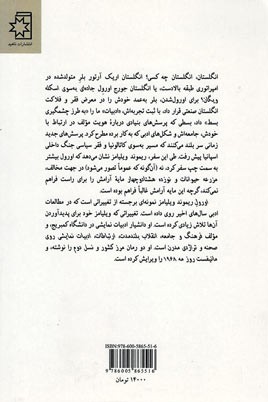 انتشارات ناهید
انگلستان، انگلستان چه کسی؟ انگلستان اریک آرتور بلرِ متولدشده در
امپراتوری طبقه بالادست، یا انگلستان جورج اورول جاده‌ای به‌سوی اسکله
ویگان؟ برای اورول‌شدن، بلر به‌عمد خودش را در معرض فقر و فلاکت
انگلستان صنعتی قرار داد، با ثبت تجربه‌اش، «ادبیات» ما را «به طرز چشمگیری
بسط» داد، بسطی که پرسش‌های بنیادی درباره‌ٔ هویت مؤلف در ارتباط با
خودش، جامعه‌اش و شکل‌های ادبی که به کار برده مطرح کرد. پرسش‌های جدید
زمانی سر بلند می‌کنند که مسیر به‌سوی کاتالونیا و فقر سیاسی جنگ داخلی
اسپانیا پیش رفت. طی این سفر، ریموند ویلیامز نشان می‌دهد که اورول بیشتر
به سمت چپ سفر کرد، نه (آن‌گونه که عموماً تصور می‌شود) در جهت مخالف.
مزرعه حیوانات و نوزده هشتادوچهار مایهٔ آرامش را برای راست فراهم
نمی‌کنند، گرچه این مایه آرامش غالباً فراهم بوده است.
اورول ریموند ویلیامز نمونه‌ای برجسته از تغییراتی است که در مطالعات
ادبی سال‌های اخیر روی داده است. تغییراتی که ویلیامز خود برای پدیدآوردن
آن‌ها تلاش زیادی کرده است. او دانشیار ادبیات نمایشی در دانشگاه کمبریج، و
مؤلف فرهنگ و جامعه، انقلاب بلندمدت، ارتباطات، ادبیات نمایشی روی
صحنه و تراژدی مدرن است. او دو رمان مرز کشور و نسل دوم را نوشته، و
مانیفست روز مه ۱۹۶۸ را ویرایش کرده است.
ISBN: 978-600-5865-51-6
9 786005 865516
۱۴۰۰۰ تومان